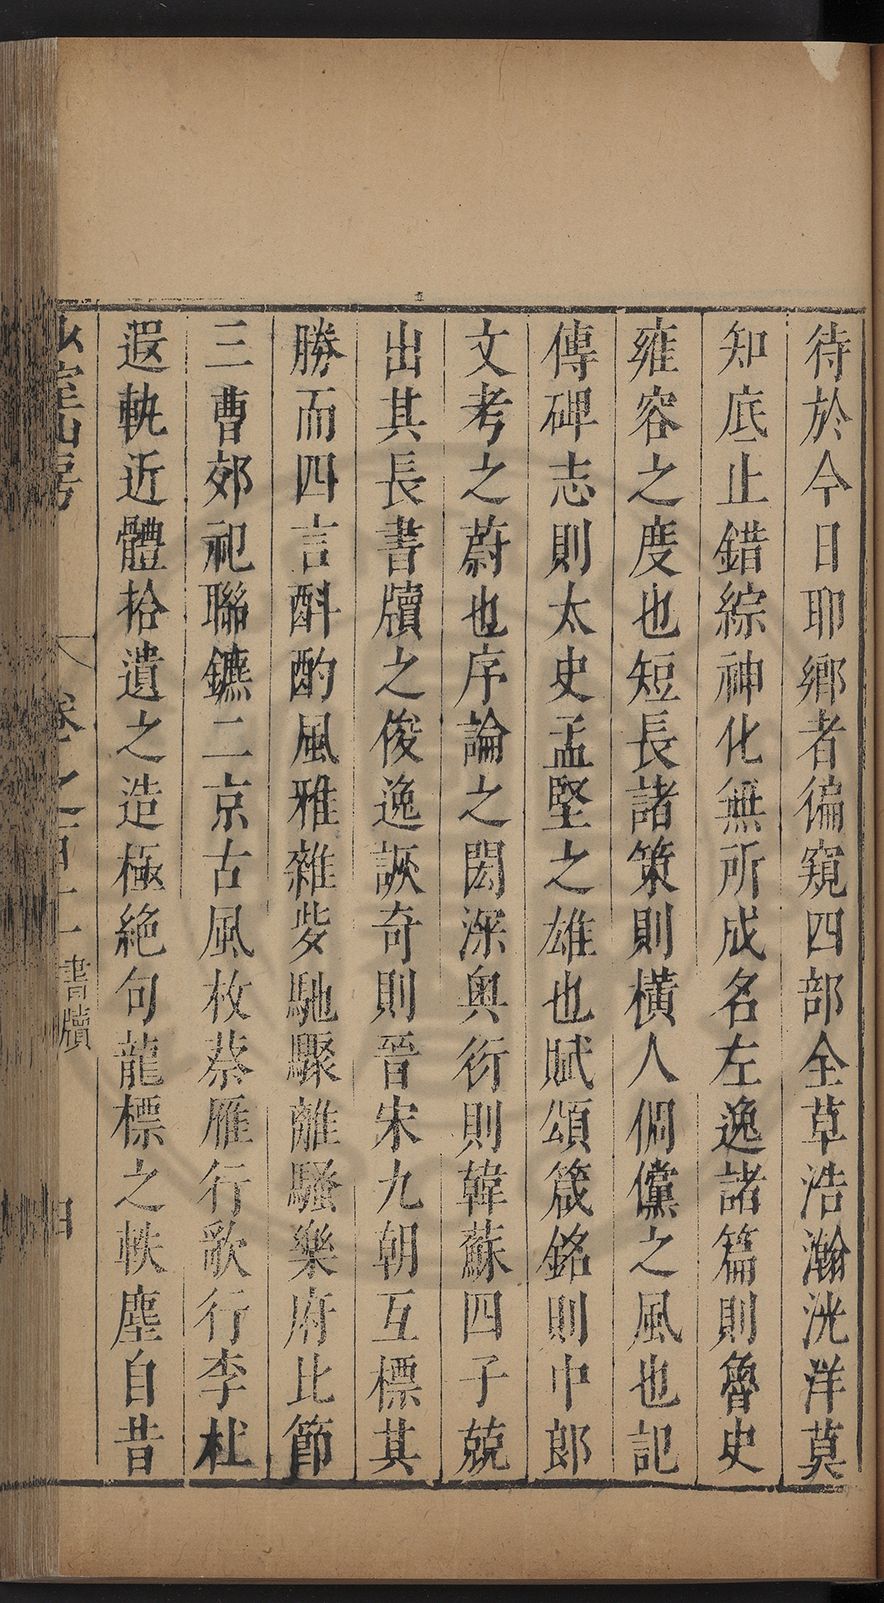 待於今日耶鄉者徧窺四部全草浩瀚洸洋莫
知底止錯綜神化無所成名左逸諸篇則魯史
雍容之度也短長諸策則橫人倜儻之風也記
傳碑志則太史孟堅之雄也賦頌箴銘則中郎
文考之蔚也序論之閎深奥衍則韓蘇四子兢
出其長書牘之俊逸詼奇則晉宋九朝互標其
勝而四言斟酌風雅雜㱔馳驟離騷樂府比節
三曹郊祀聯鑣二京古風枚蔡雁行歌行李杜
遐軌近體拾遺之造極絶句龍標之軼塵自昔
山房
卷之百十一 書牘 四